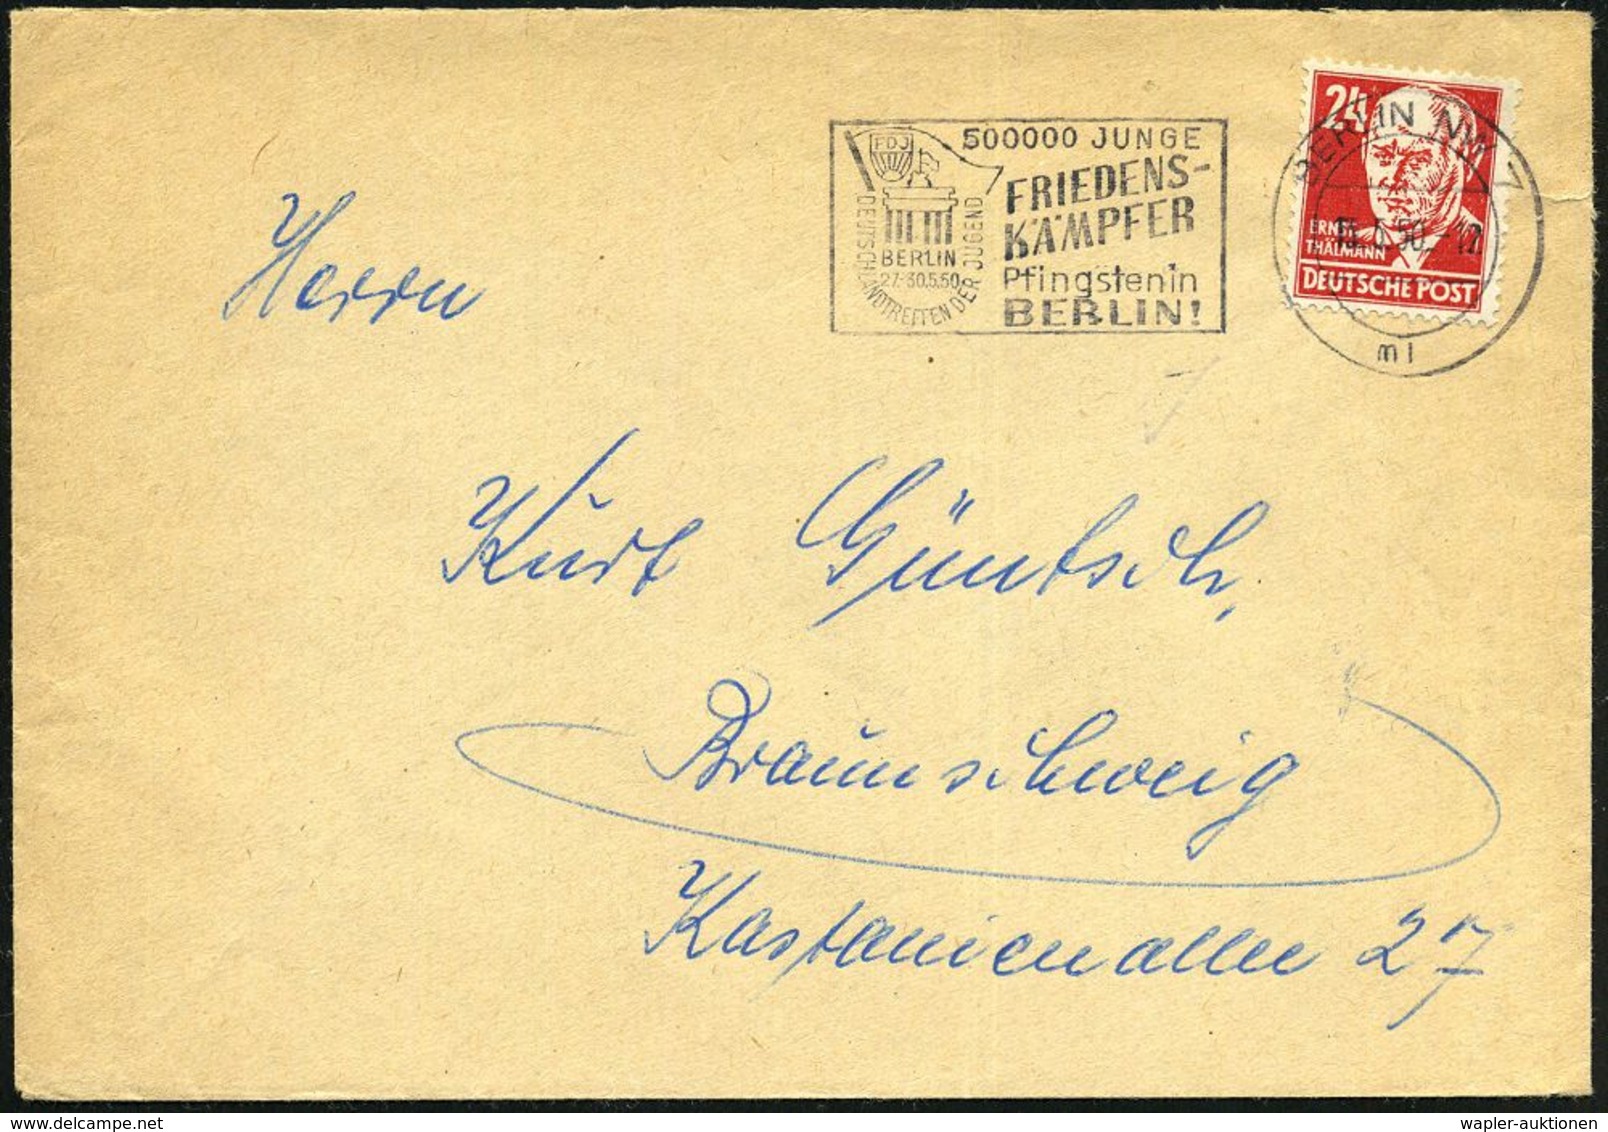 500000 JUNGE
FRIEDENS-
KÄMPFER
Pfingsten in
BERLIN!
FDJ
BERLIN
27.-30.5.50
DEUTSCHLANDTREFFEN DER JUGEND
BERLIN NW 7
50.-17
ml
24
ERNST
THÄLMANN
DEUTSCHE POST
Herrn
Kurt Güntsch,
Braunschweig
Kastanienallee 27
wapler-auktionen